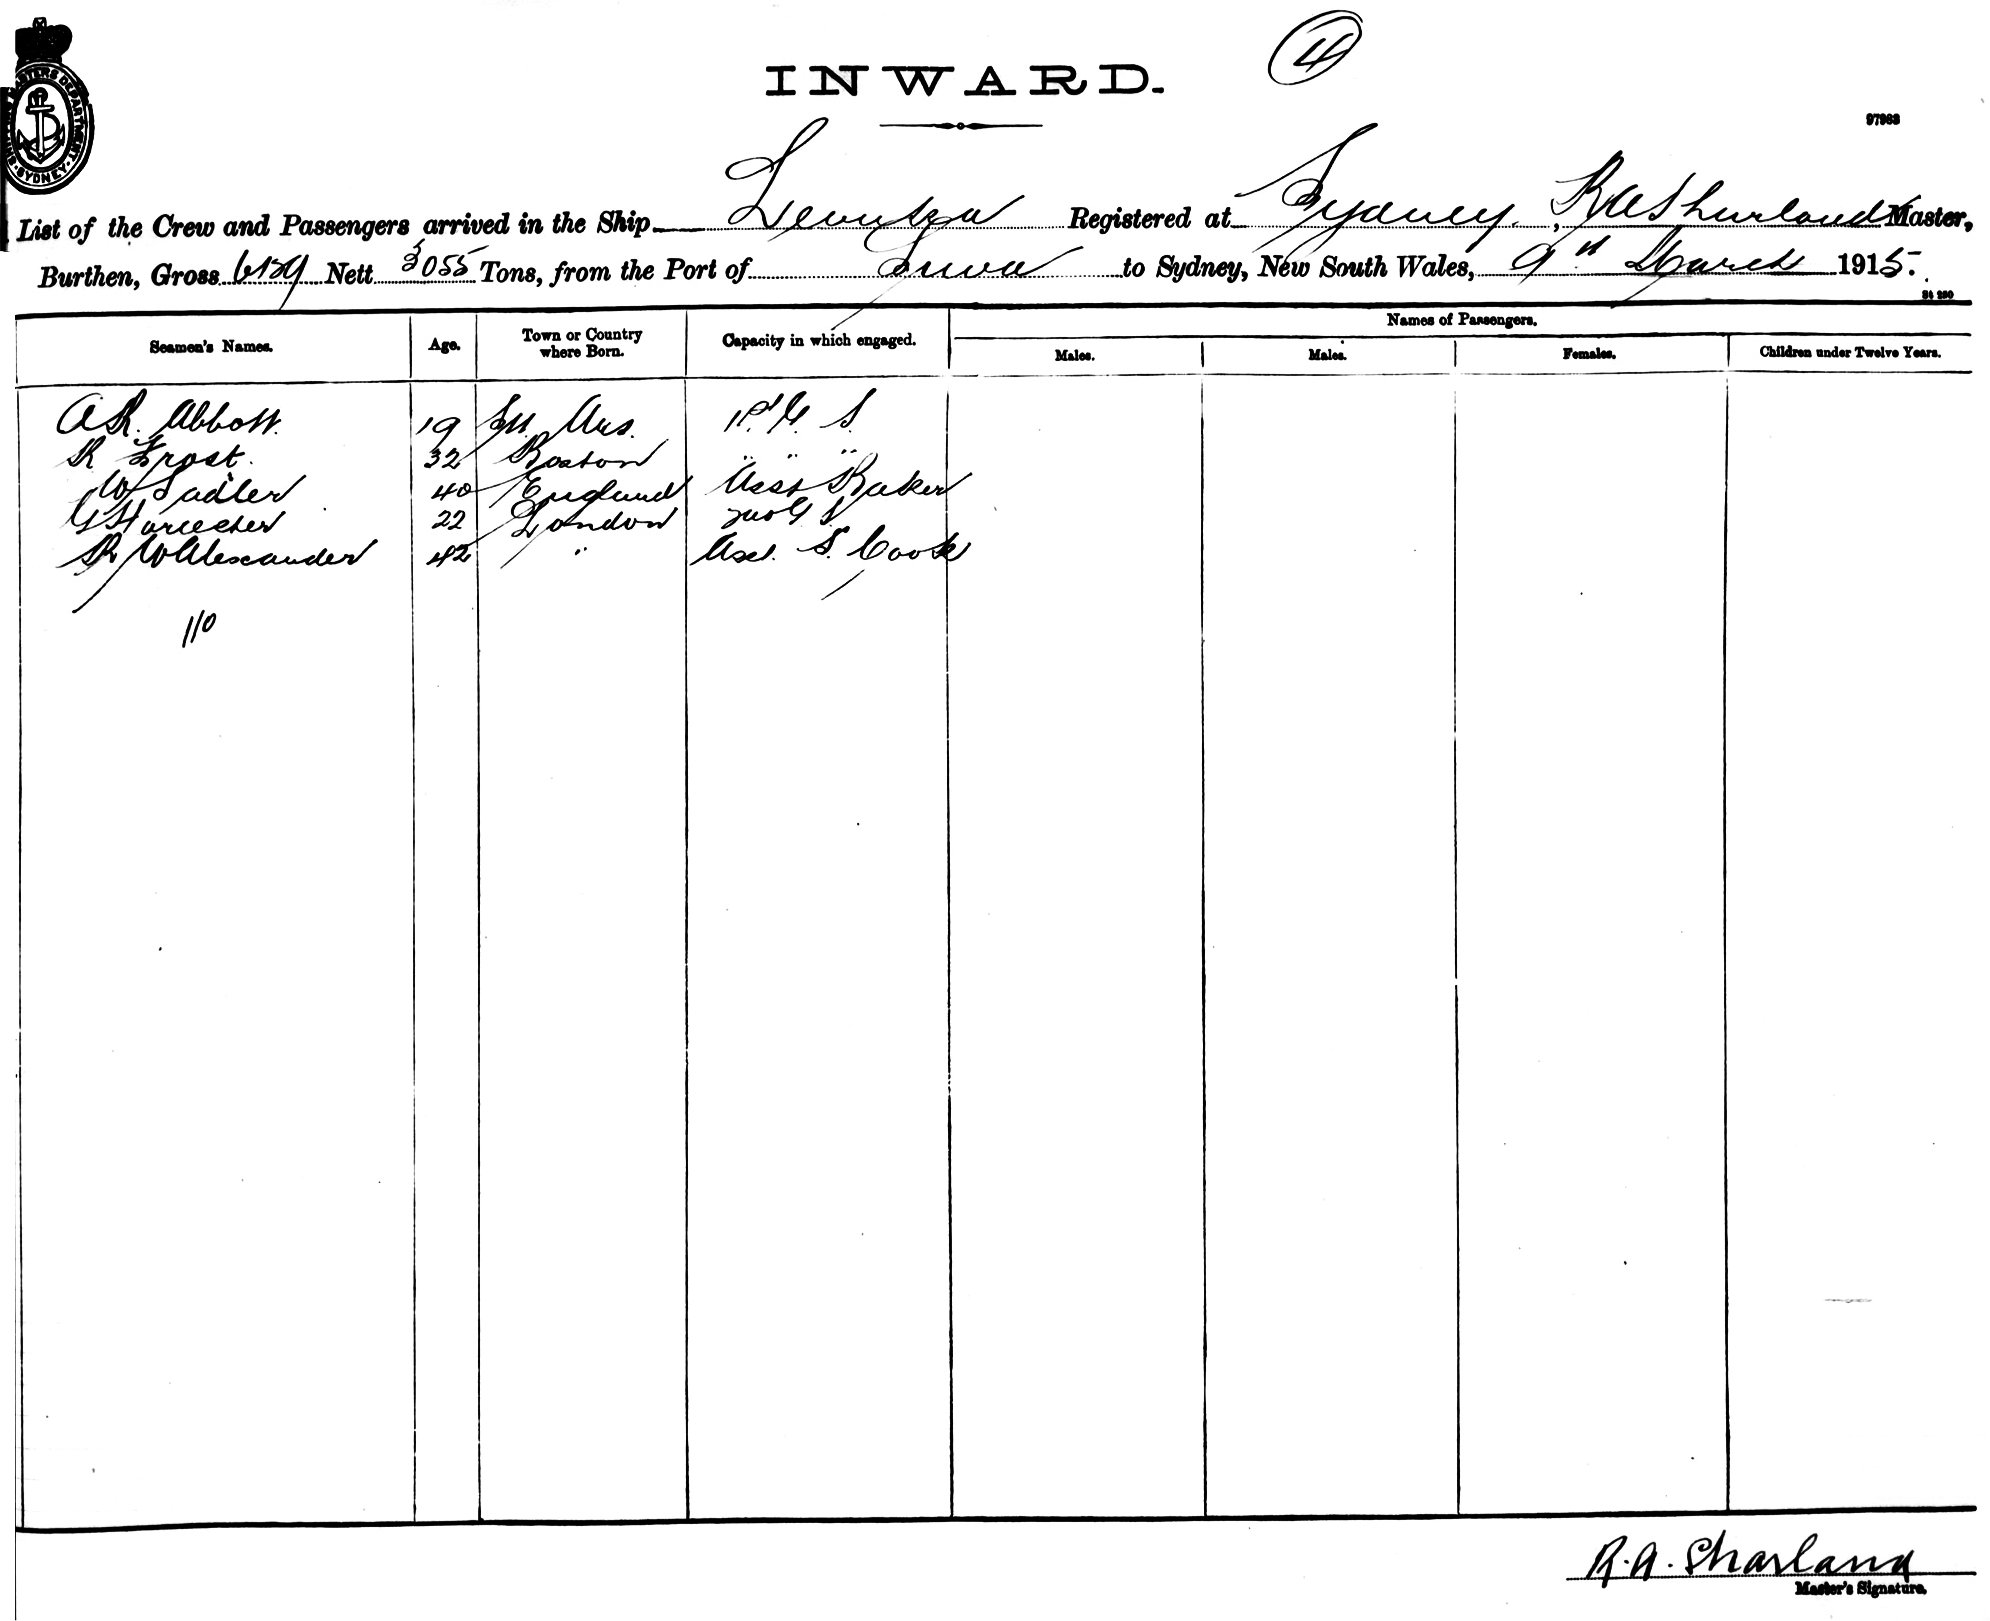 4
INWARD.
97963
SHIPPING MASTERS DEPARTMENT · SYDNEY ·
List of the Crew and Passengers arrived in the Ship Levuka Registered at Sydney, R A Sharland Master,
Burthen, Gross 6129 Nett 3055 Tons, from the Port of Suva to Sydney, New South Wales, 9th March 1915.
St 290
Names of Passengers.
Seamen's Names. Age. Town or Country where Born. Capacity in which engaged. Males. Males. Females. Children under Twelve Years.
A R. Abbott. 19 Sth Aus. P. S.
R Frost. 32 Boston " " "
W Sadler 40 England Asst Baker
G 22 London S
R W Alexander 42 " Asst. S. Cook
110
R. A. Sharland
Master's Signature.